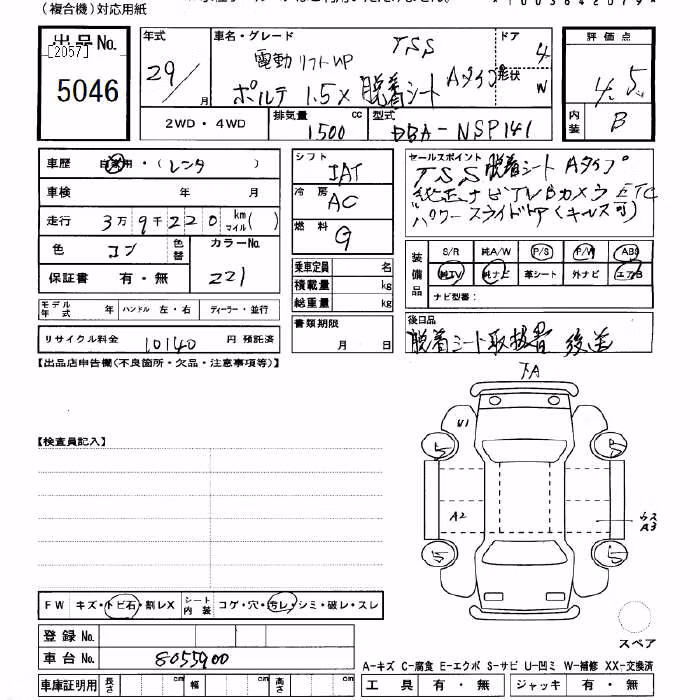 (複合機)対応用紙
出品No. 年式 車名・グレード TSS ドア 4 評価点
[2057]
5046 29/ 月 電動リフトUP Aタイプ 形状 W 4.5
ポルテ 1.5X 脱着シート
2WD・4WD 排気量 1500 cc 型式 DBA-NSP141 内装 B
車歴 自家用・(レンタ )
車検 年 月
走行 3万9千220 km マイル( )
色 コン 色替 カラーNo.
保証書 有・無 221
モデル年式 年 ハンドル 左・右 ディーラー・並行
リサイクル料金 10140 円 預託済
シフト IAT
冷房 AC
燃料 G
乗車定員 名
積載量 kg
総重量 kg
書類期限 月 日
セールスポイント 脱着シート Aタイプ
TSS
純正ナビTVBカメラ ETC
パワースライドドア(キーレス可)
装備品 S/R 純A/W P/S P/W ABS
純TV 純ナビ 革シート 外ナビ エアB
ナビ型番:
後日品
脱着シート取扱書 後送
【出品店申告欄(不良箇所・欠品・注意事項等)】
【検査員記入】
下A
U1
5 5
A2
A3
5 5
スペア
FW キズ・トビ石・割レX シート内装 コゲ・穴・汚レ・シミ・破レ・スレ
登録No.
車台No. 8055900
車庫証明用 長さ cm 幅 cm 高さ cm
A-キズ C-腐食 E-エクボ S-サビ U-凹ミ W-補修 XX-交換済
工具 有・無 ジャッキ 有・無